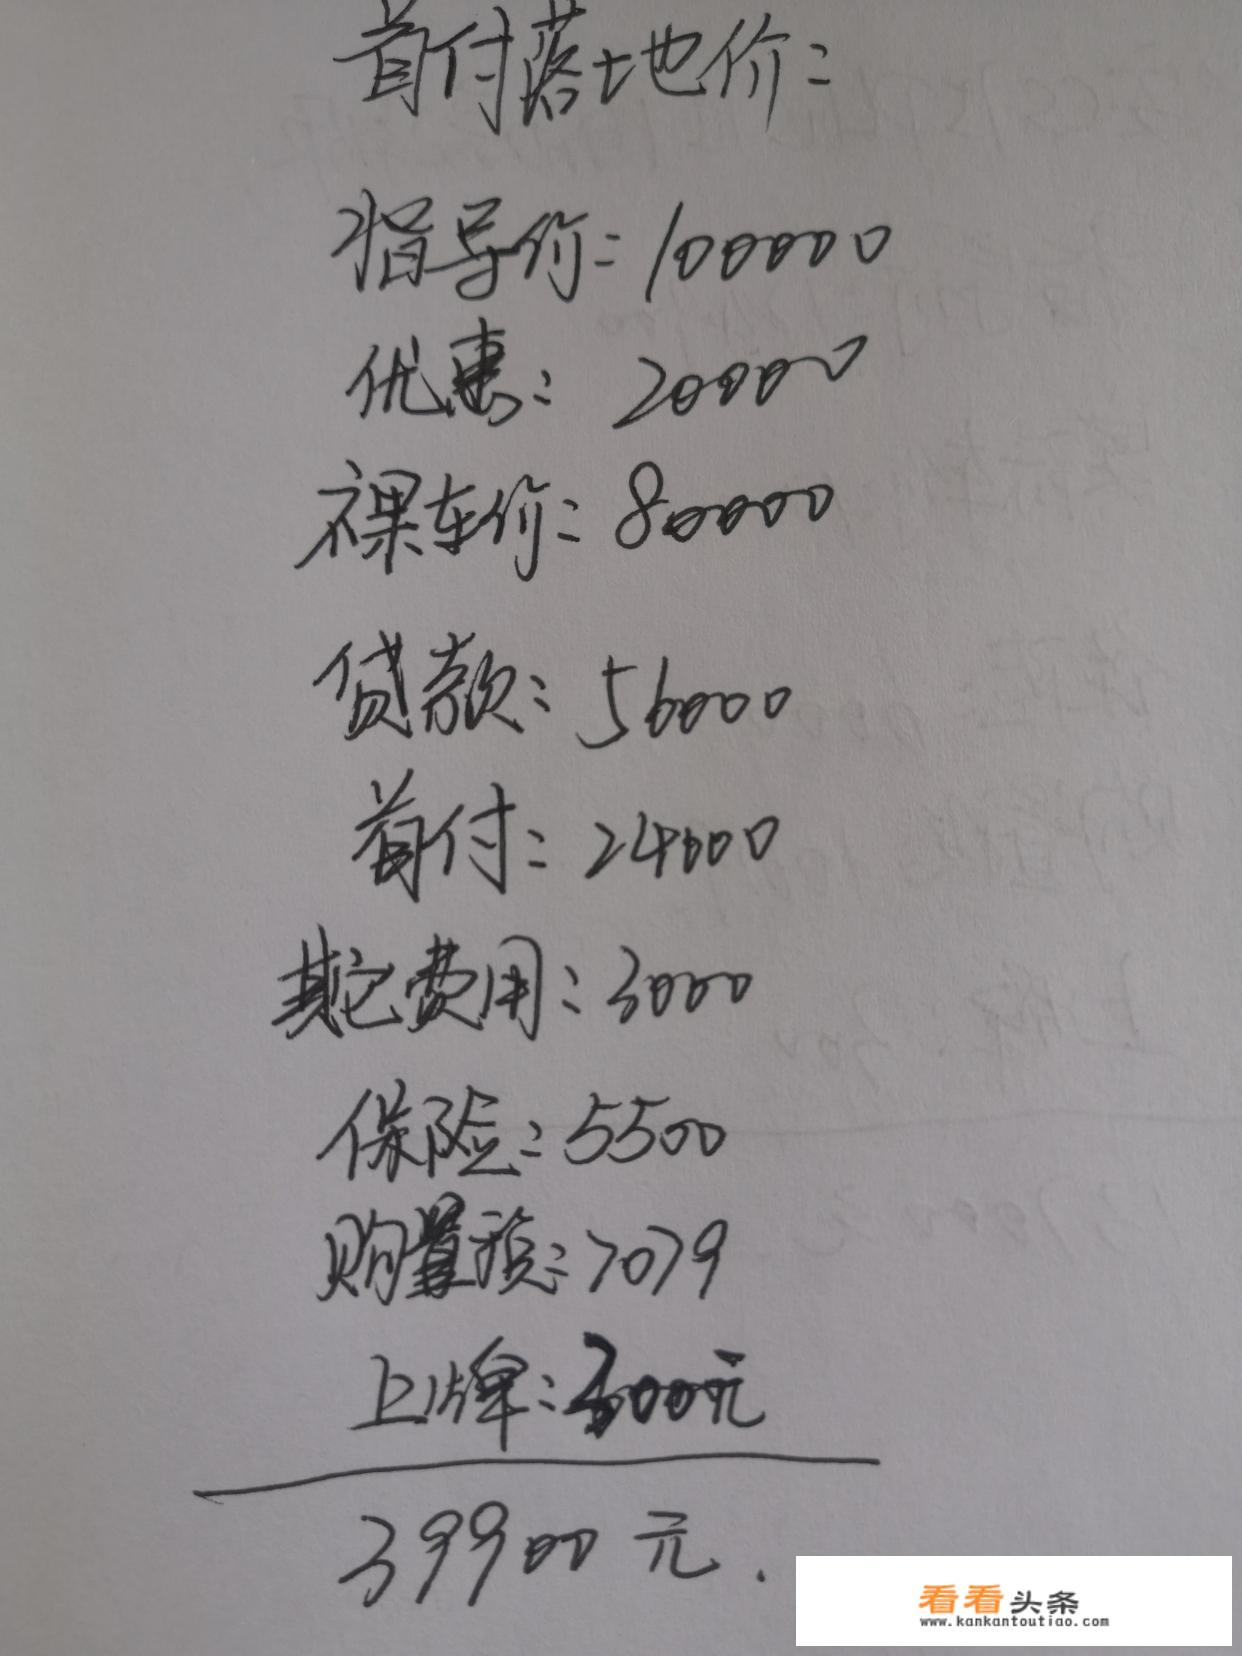 首付落地价：
指导价：100000
优惠：20000
裸车价：80000
贷款：56000
首付：24000
其它费用：3000
保险：5500
购置税：7079
上牌：300元
39900元.
看看头条
www.kankantoutiao.com